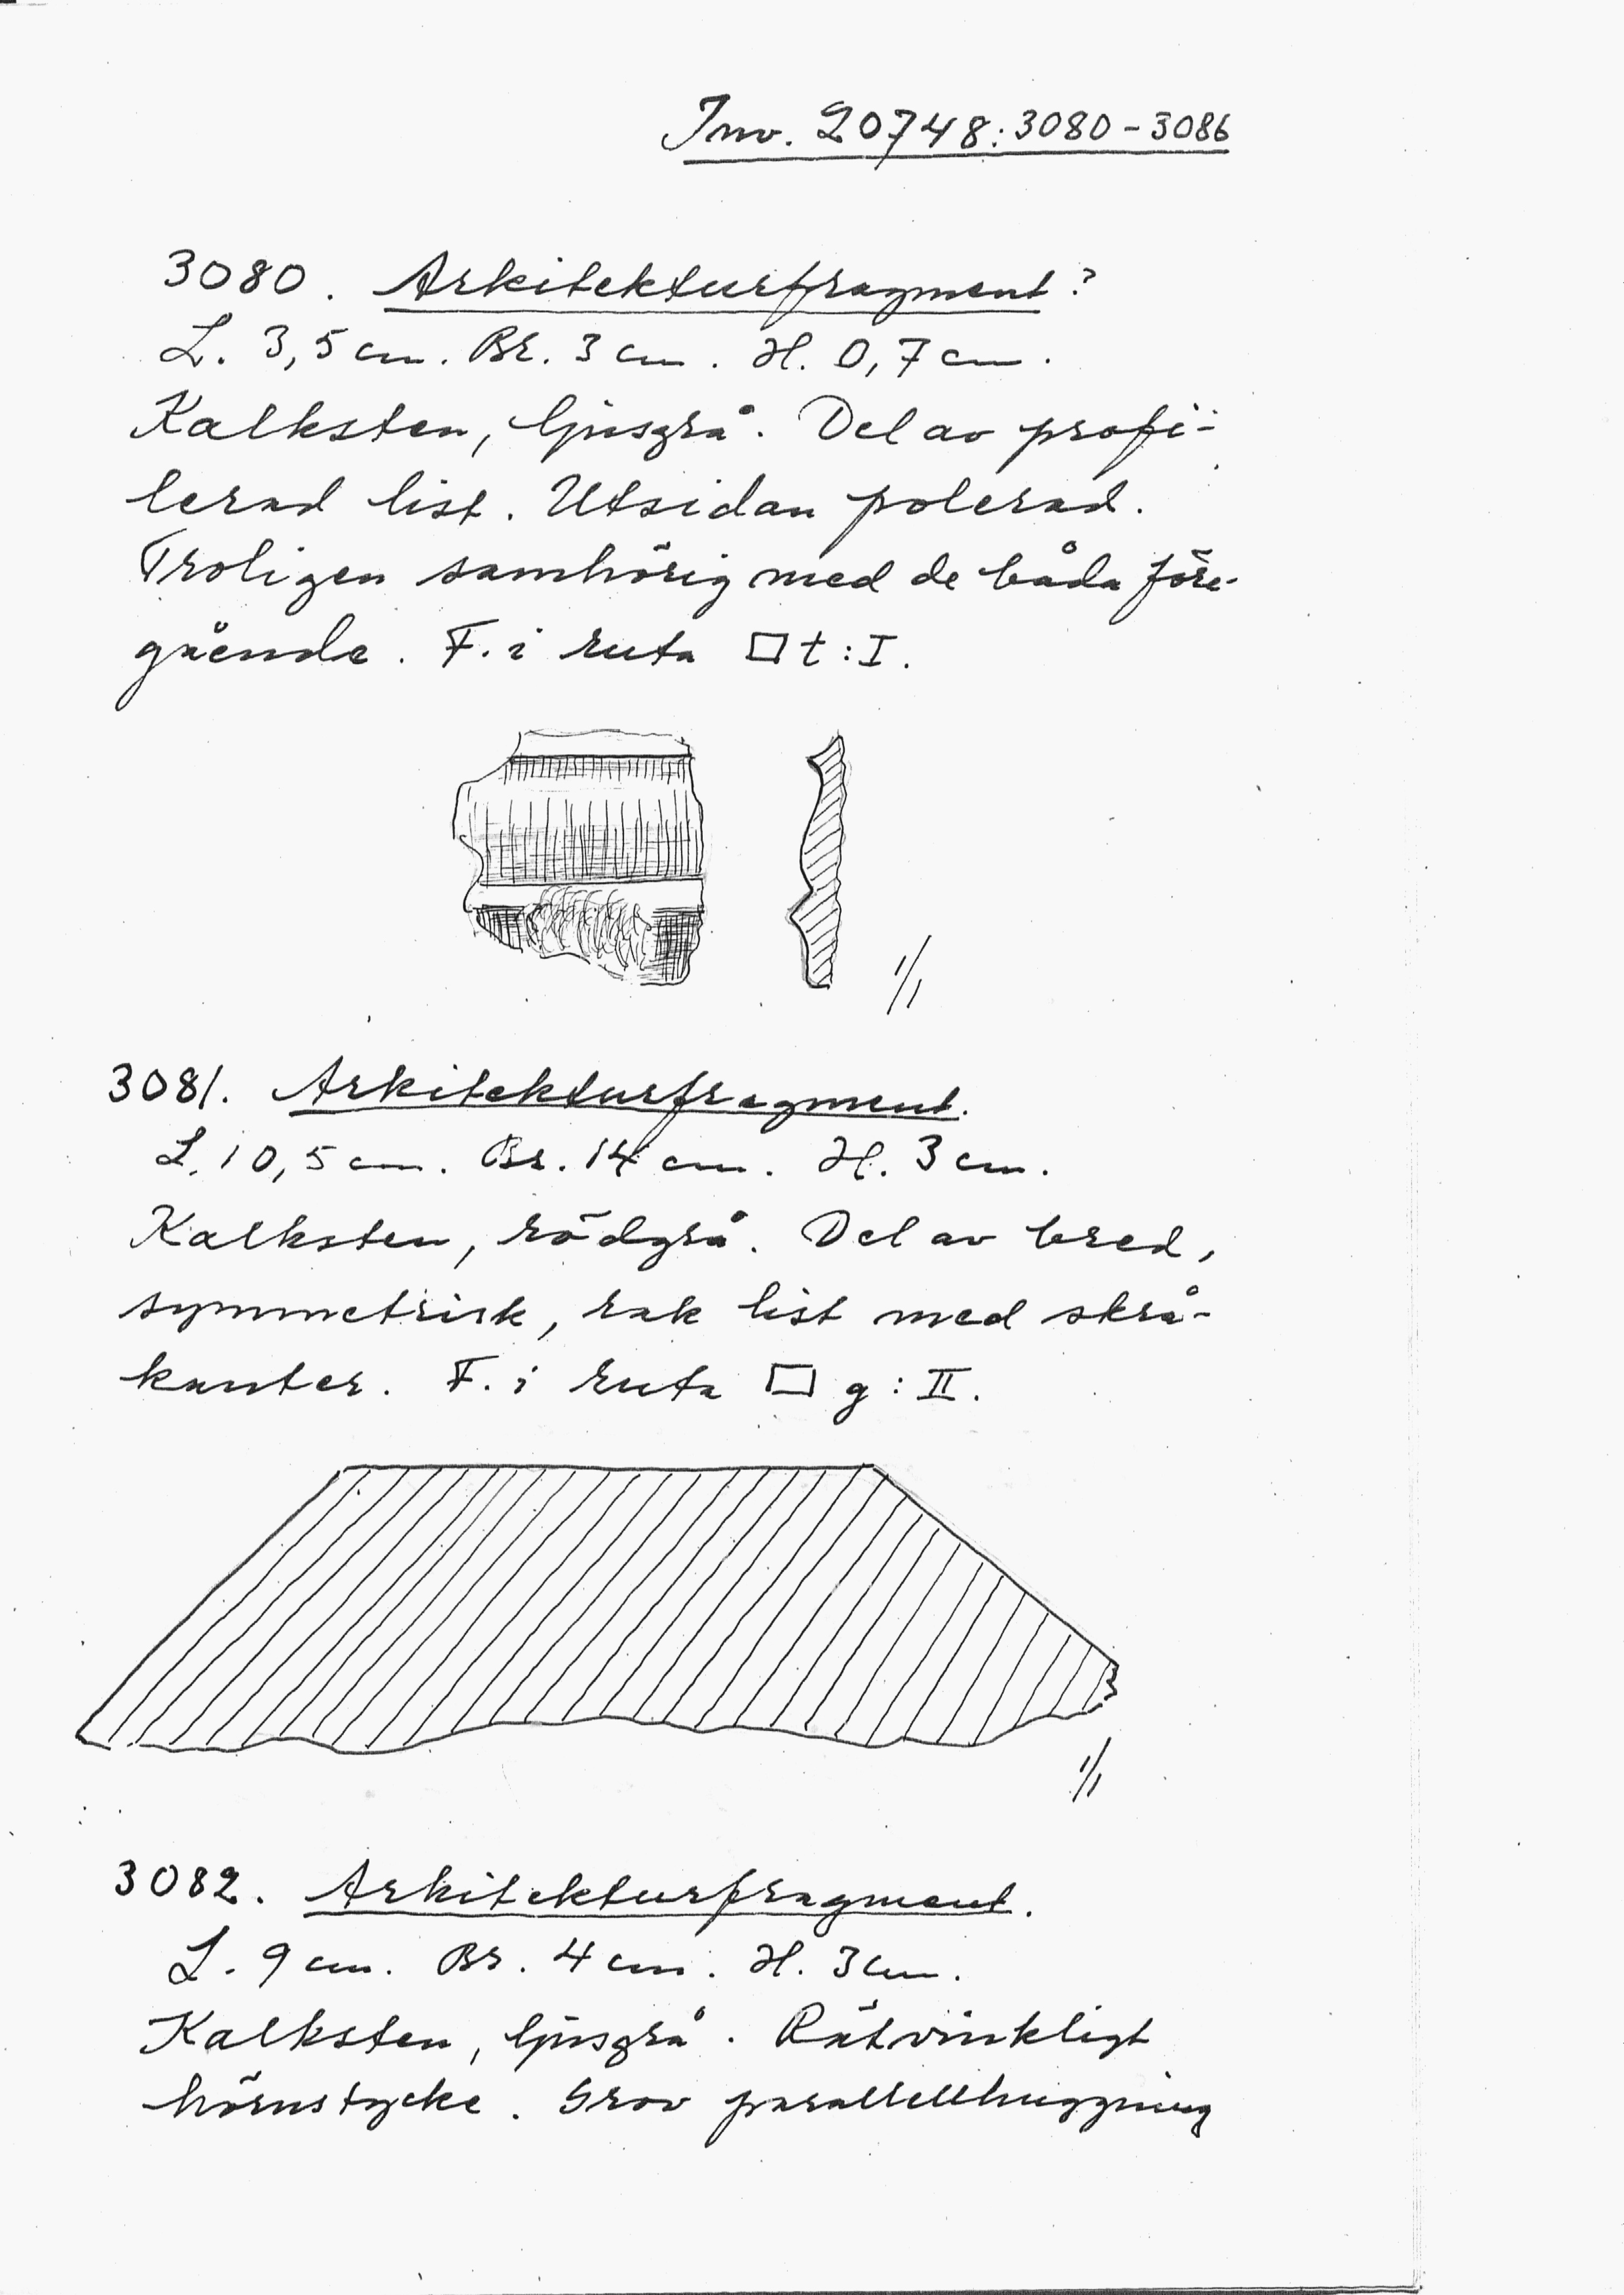 Inv. 20748:3080-3086
3080. Arkitekturfragment?
L. 3,5 cm. Br. 3 cm. H. 0,7 cm.
Kalksten, ljusgrå. Del av profi-
lerad list. Utsidan polerad.
Troligen samhörig med de båda före-
gående. F. i ruta □ t:I.
1/1
3081. Arkitekturfragment.
L. 10,5 cm. Br. 14 cm. H. 3 cm.
Kalksten, rödgrå. Del av bred,
symmetrisk, rak list med skrå-
kanter. F. i ruta □ g:II.
1/1
3082. Arkitekturfragment.
L. 9 cm. Br. 4 cm. H. 3 cm.
Kalksten, ljusgrå. Rätvinkligt
hörnstycke. Grov parallellhuggning